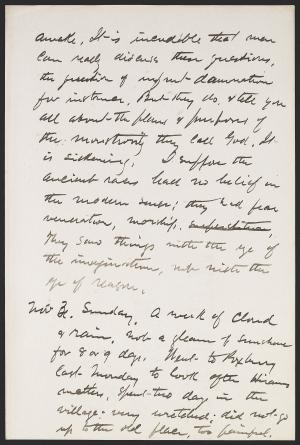 awake. It is incredible that men
can really discuss these questions,
the question of infant damnation
for instance. But they do, & tell you
all about the plans & purposes of
the monstrosity they call God. It
is sickening. I suppose the
ancient races had no belief in
the modern sense; they had fear
veneration, worship, superstition,
They saw things with the eye of
the imagination, not with the
eye of reason.
Nov 3. Sunday. A week of cloud
& rain, not a gleam of sunshine
for 8 or 9 days. Went to Roxbury
last Monday to look after Hirams
matters, spent two days in the
village - very wretched: did not go
up to the old place, too painful.